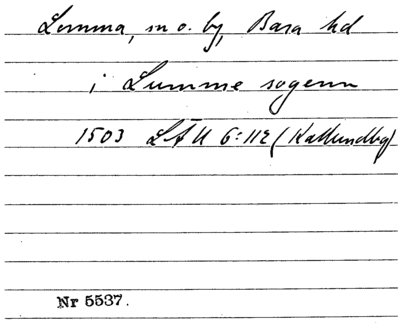 Lomma, sn o. by, Bara hd
i Lumme sogenn
1503 LÅU 6:112 (Kallundbg)
Nr 5537.